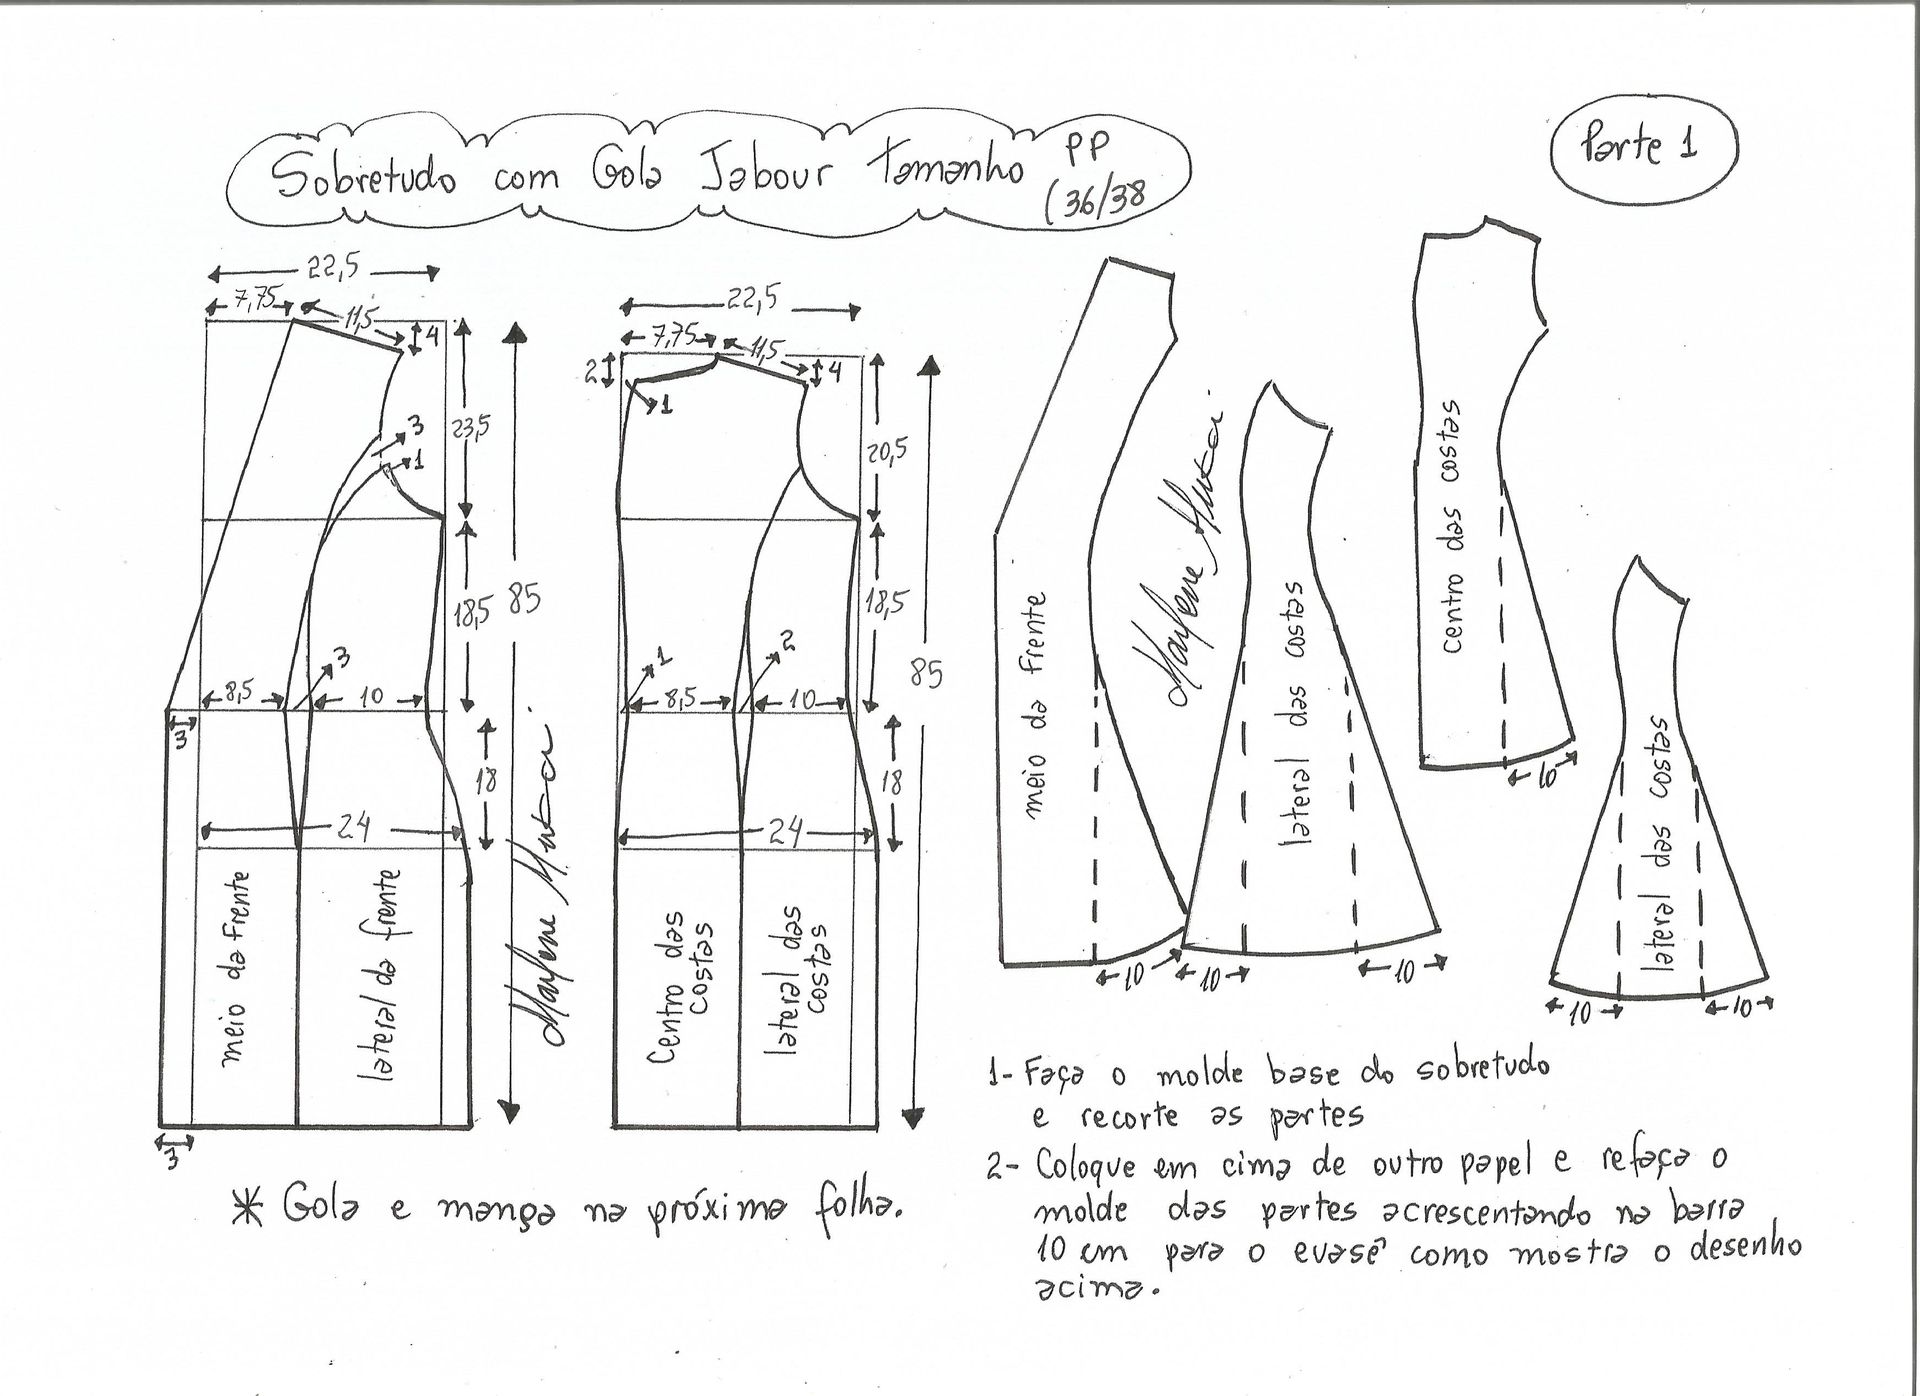 Sobretudo com Gola Jabour Tamanho PP
(36/38
Parte 1
22,5
7,75
11,5
4
23,5
3
1
18,5
85
3
8,5
10
3
18
24
meio da frente
lateral da frente
3
22,5
7,75
11,5
2
4
1
20,5
18,5
85
1
2
8,5
10
18
24
Centro das
costas
lateral das
costas
Marlene Mukai
meio da frente
10
Marlene Mukai
lateral das costas
10
10
centro das costas
10
lateral das costas
10
10
* Gola e manga na próxima folha.
1- Faça o molde base do sobretudo
e recorte as partes
2- Coloque em cima de outro papel e refaça o
molde das partes acrescentando na barra
10 cm para o evasê como mostra o desenho
acima.